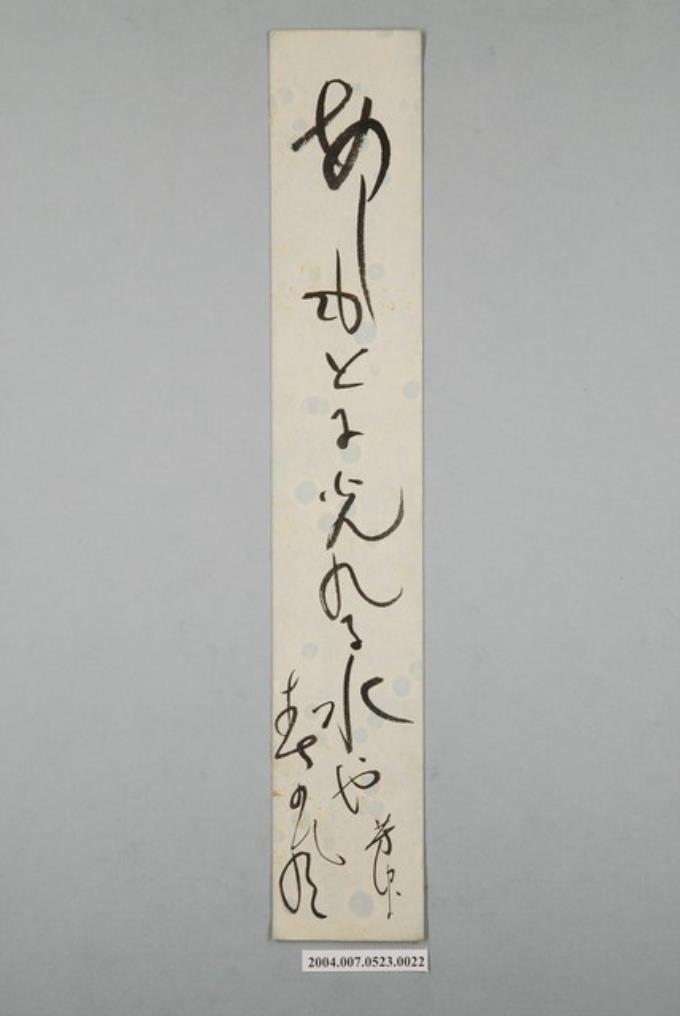 あしもとに光れる水や
春の風
2004.007.0523.0022